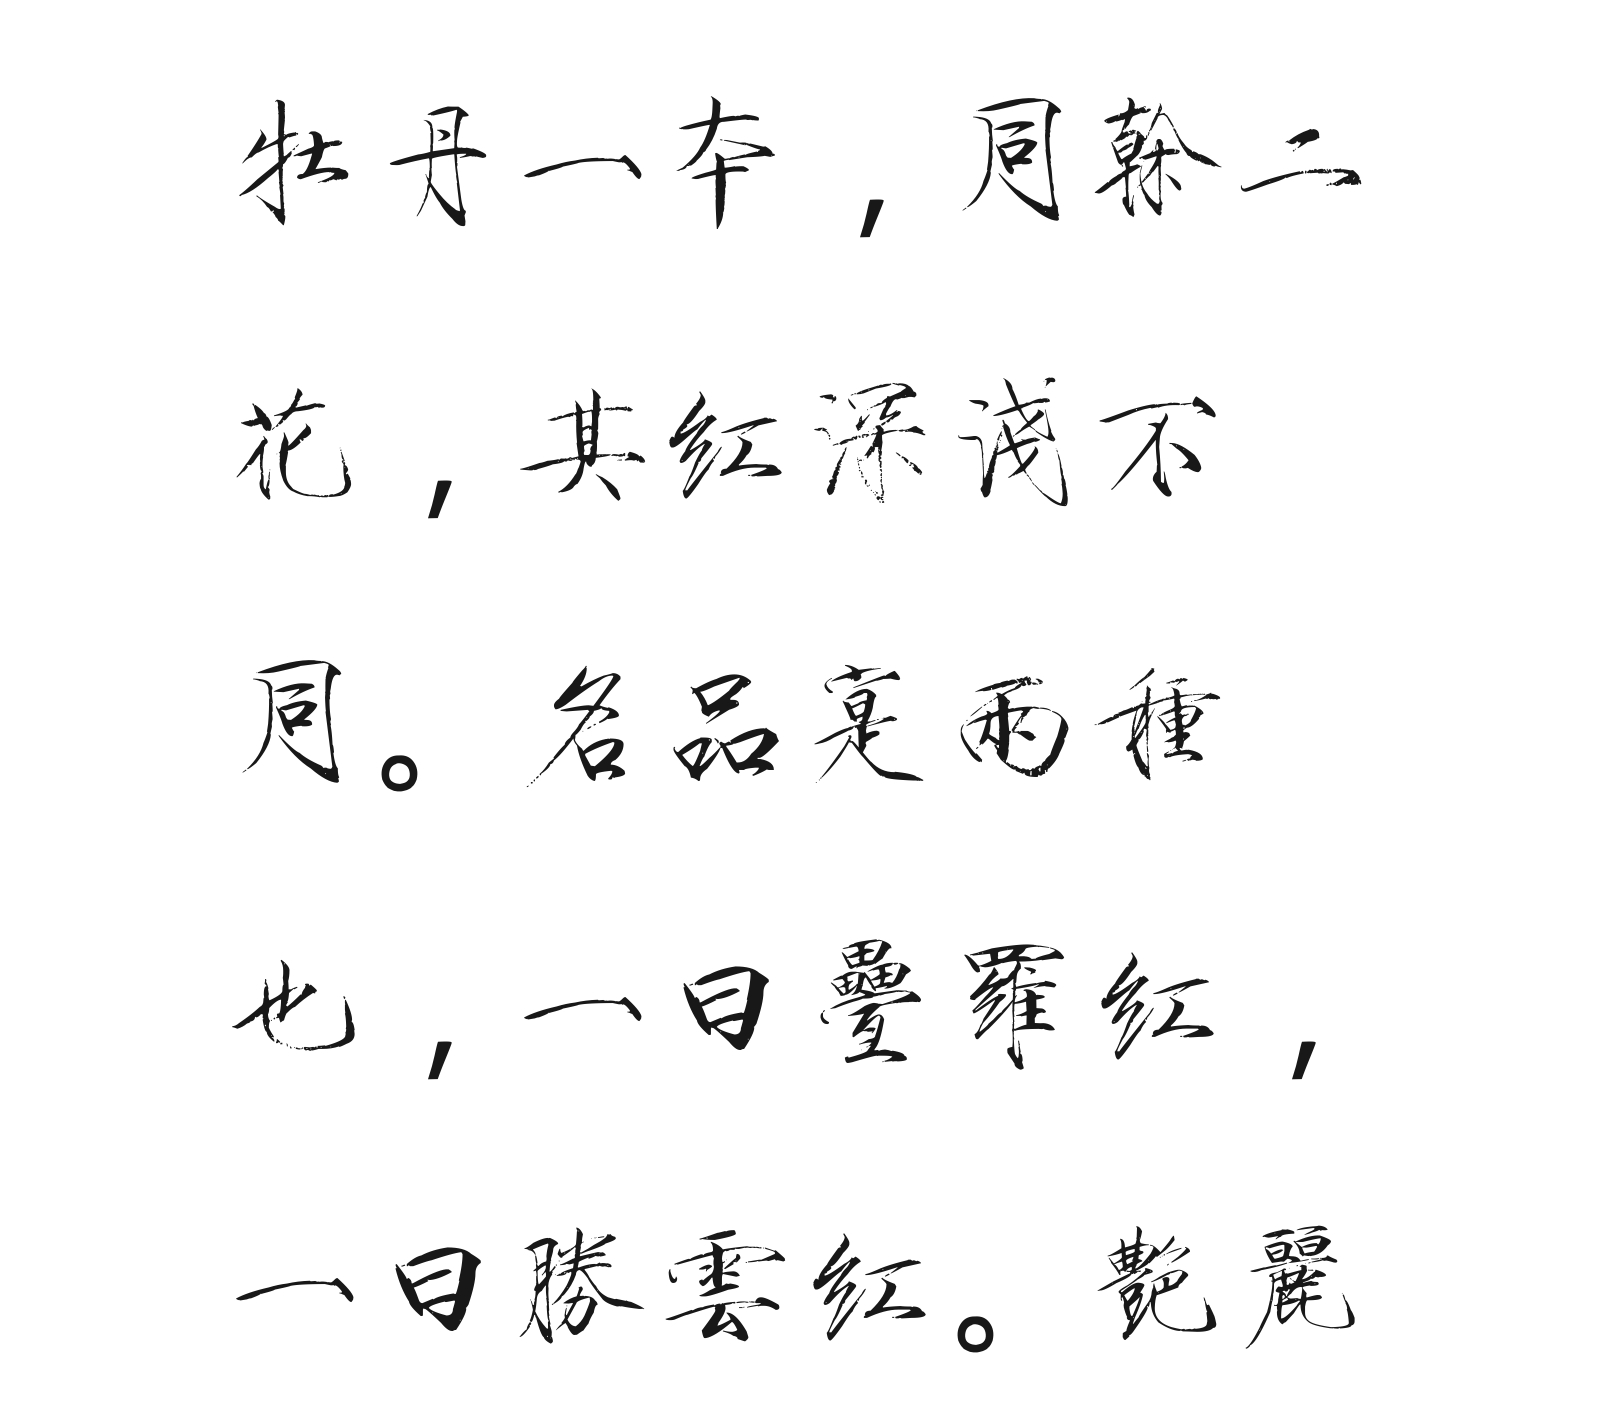 牡丹一本，同榦二
花，其紅深淺不
同。名品寔兩種
也，一曰疊羅紅，
一曰勝雲紅。艷麗